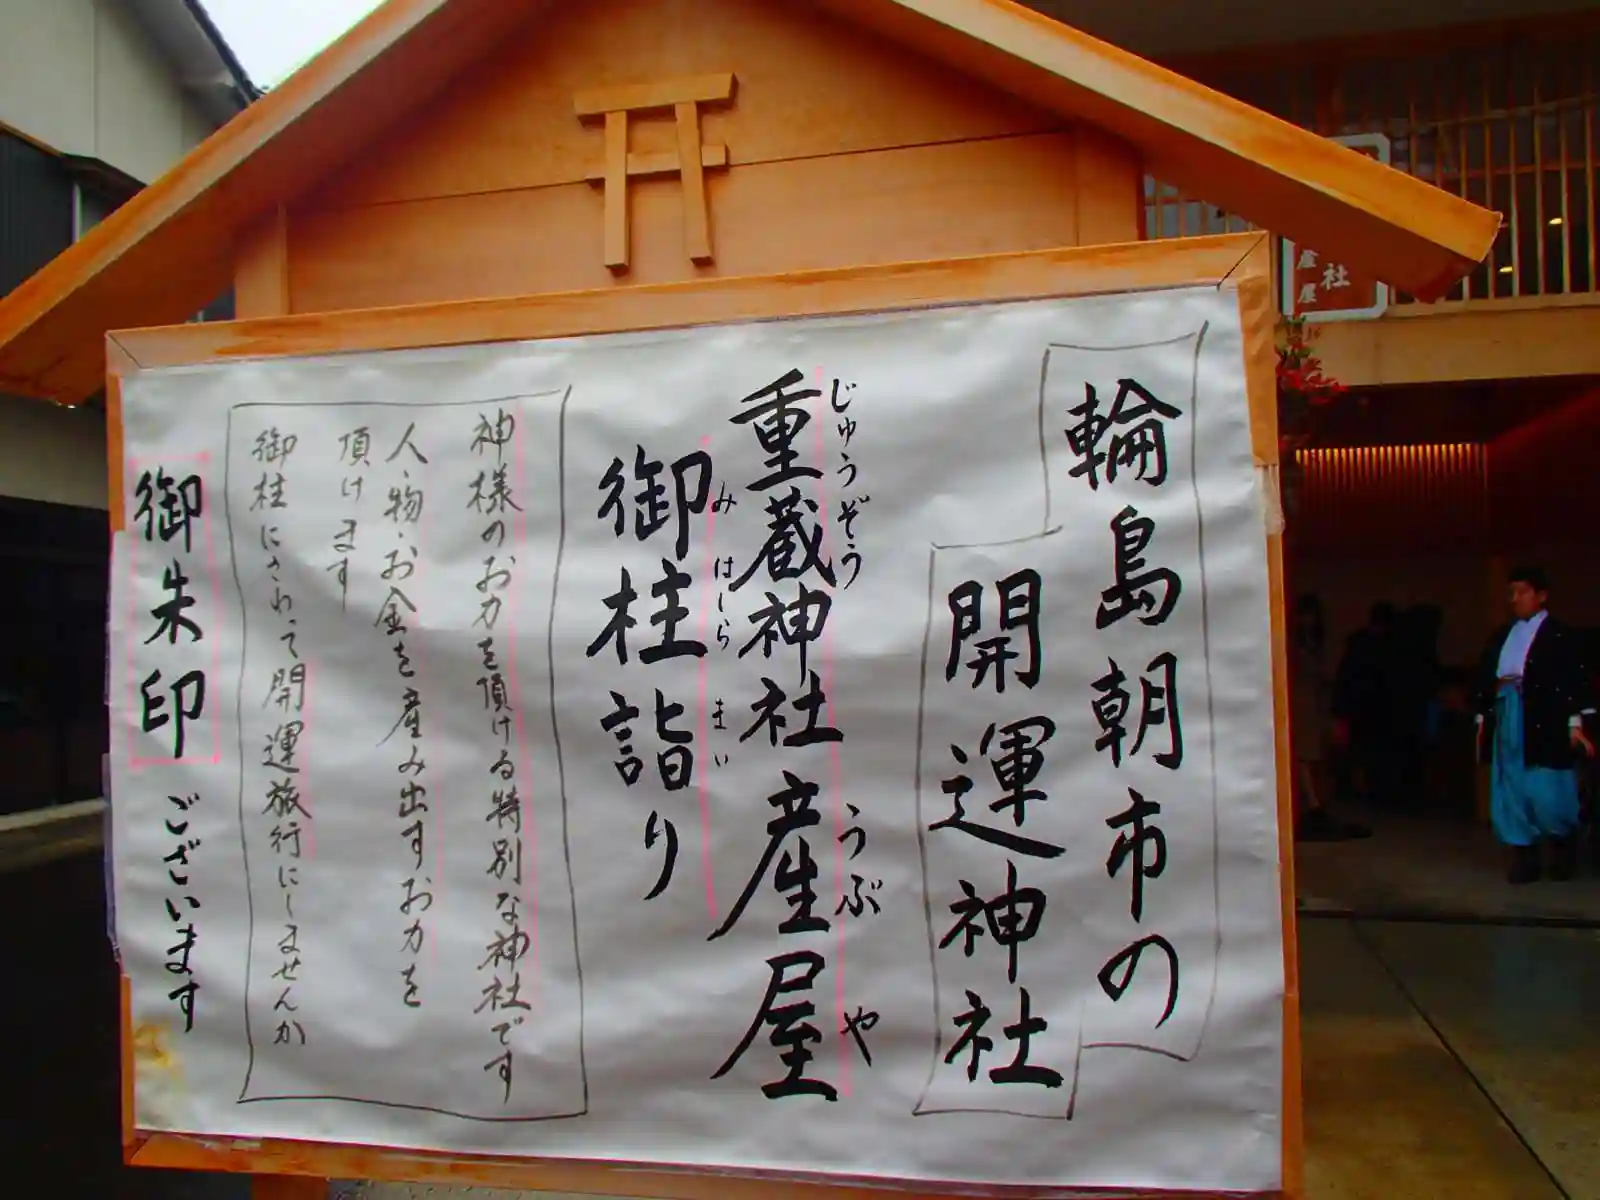 輪島朝市の
開運神社
じゅうぞう うぶや
重蔵神社産屋
みはしら まい
御柱詣り
神様のお力を頂ける特別な神社です
人・物・お金を産み出すお力を
頂けます
御柱にさわって開運旅行にしませんか
御朱印ございます
社
産屋